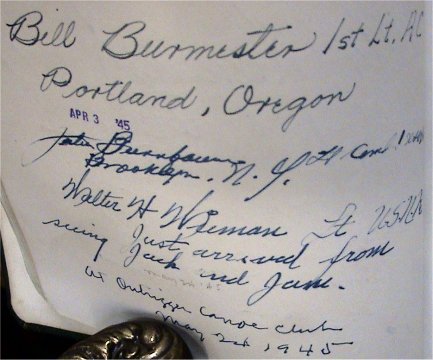 Bill Burmester 1st Lt. AC
Portland, Oregon
APR 3 '45
Brooklyn. N.Y.
Walter H Wieman Lt. USNR
Just arrived from
seeing Jack and Jane.
at Outrigger Canoe Club
May 24 1945